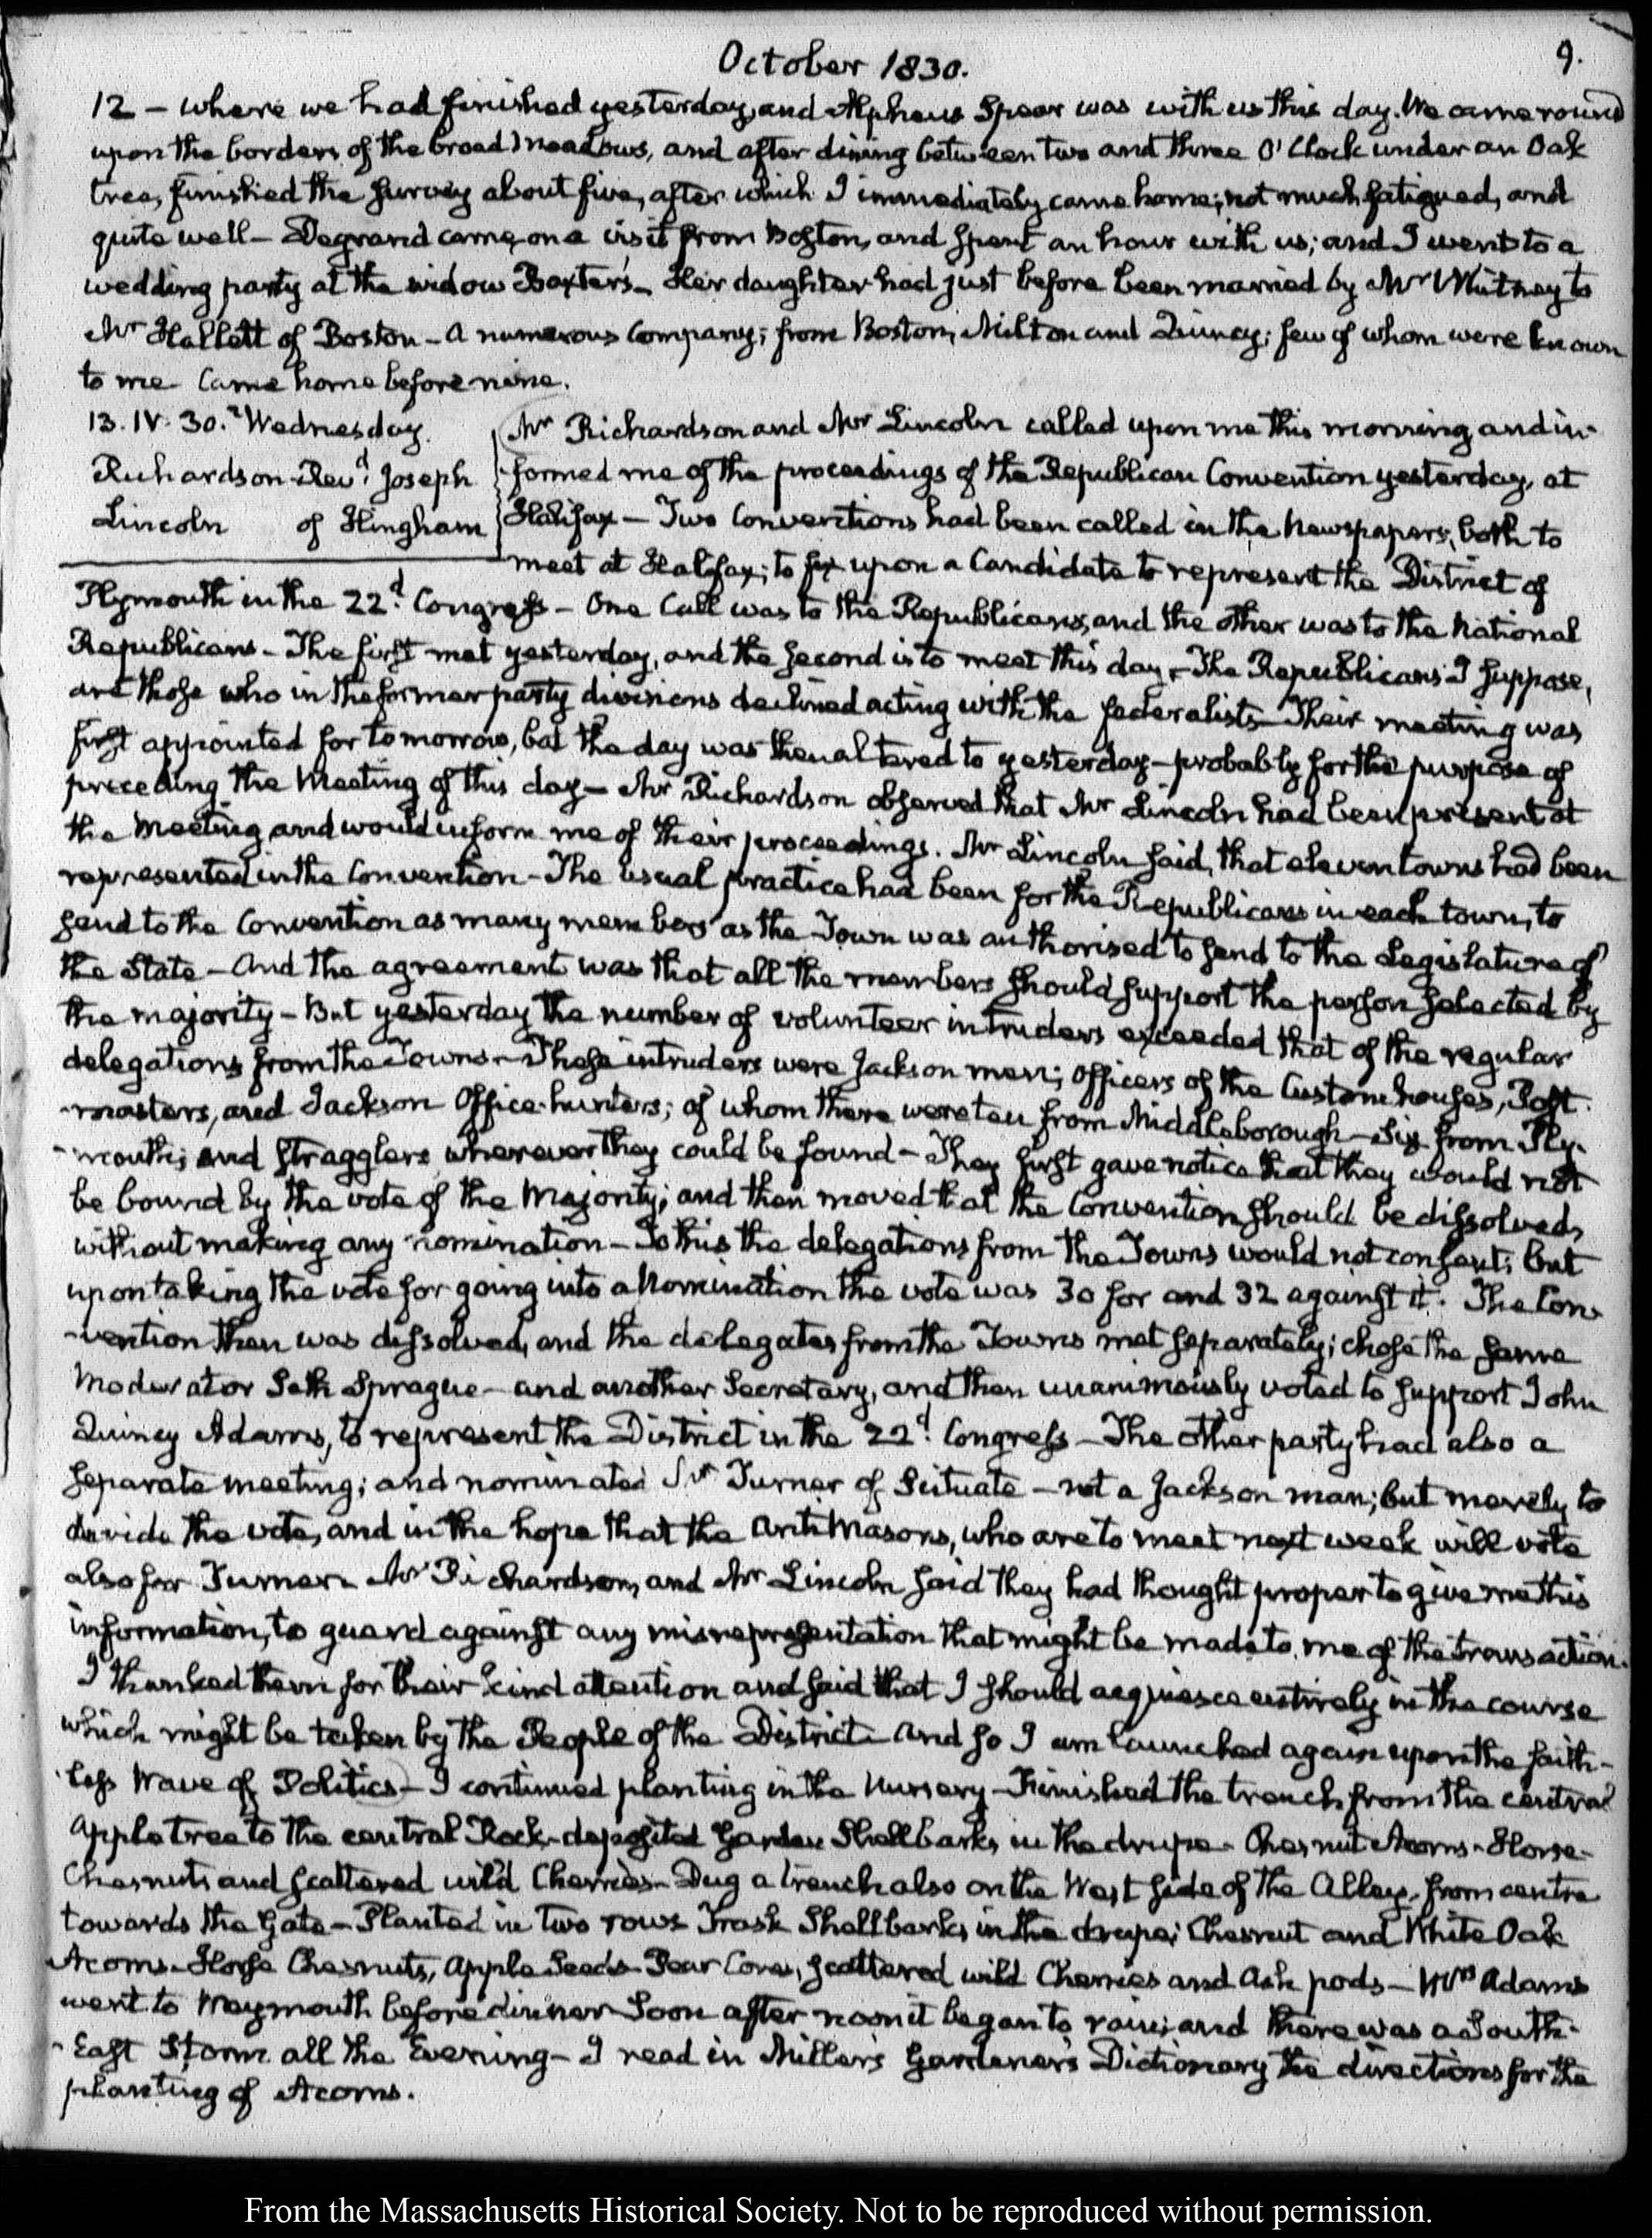 October 1830.
9.
12 – where we had finished yesterday, and Alpheus Spear was with us this day. We came round
upon the borders of the broad meadows, and after dining between two and three O'Clock under an Oak
tree, finished the survey about five, after which I immediately came home; not much fatigued, and
quite well – Degrand came on a visit from Boston, and spent an hour with us; and I went to a
wedding party at the widow Baxter's – Her daughter had just before been married by Mr Whitney to
Mr Hallett of Boston – A numerous Company; from Boston, Milton and Quincy; few of whom were known
to me – Came home before nine.
13. IV. 30. Wednesday.
Richardson Revd. Joseph
Lincoln of Hingham
Mr Richardson and Mr Lincoln called upon me this morning and in-
formed me of the proceedings of the Republican Convention yesterday, at
Halifax – Two Conventions had been called in the Newspapers, both to
meet at Halifax; to fix upon a Candidate to represent the District of
Plymouth in the 22d. Congress – One Call was to the Republicans, and the other was to the National
Republicans – The first met yesterday, and the second is to meet this day – The Republicans I suppose,
are those who in the former party divisions declined acting with the federalists – Their meeting was
first appointed for tomorrow, but the day was then altered to yesterday – probably for the purpose of
preceding the Meeting of this day – Mr Richardson observed that Mr Lincoln had been present at
the Meeting and would inform me of their proceedings. Mr Lincoln said, that eleven towns had been
represented in the Convention – The usual practice had been for the Republicans in each town, to
send to the Convention as many members as the Town was authorised to send to the Legislature of
the State – And the agreement was that all the members should support the person selected by
the majority – But yesterday the number of volunteer intruders exceeded that of the regular
delegations from the Towns – These intruders were Jackson men; Officers of the Customhouses, Post-
masters, and Jackson Office-hunters; of whom there were ten from Middleborough – six from Ply-
mouth; and stragglers wherever they could be found – They first gave notice that they would not
be bound by the vote of the Majority; and then moved that the Convention should be dissolved,
without making any nomination – To this the delegations from the Towns would not consent; but
upon taking the vote for going into a Nomination the vote was 30 for and 32 against it. The Con-
vention then was dissolved, and the delegates from the Towns met separately; chose the same
Moderator Seth Sprague – and another Secretary, and then unanimously voted to support John
Quincy Adams, to represent the District in the 22d. Congress – The other party had also a
separate meeting; and nominated Mr Turner of Scituate – not a Jackson man; but merely to
divide the vote, and in the hope that the Anti Masons, who are to meet next week will vote
also for Turner – Mr Richardson, and Mr Lincoln said they had thought proper to give me this
information, to guard against any misrepresentation that might be made to me of the transaction.
I thanked them for their kind attention and said that I should acquiesce entirely in the course
which might be taken by the People of the District – And so I am launched again upon the faith-
less Wave of Politics – I continued planting in the Nursery – Finished the trench from the central
Apple tree to the central Rock – deposited Garden Shellbarks in the drupe – Chesnut Acorns – Horse-
Chesnuts and scattered wild Cherries – Dug a trench also on the West side of the Alley, from centre
towards the Gate – Planted in two rows Trask Shellbarks in the drupe; Chesnut and White Oak
Acorns – Horse Chesnuts, Apple Seeds – Pear Cores, scattered wild Cherries and Ash pods – Mrs Adams
went to Weymouth before dinner – Soon after noon it began to rain; and there was a South-
East Storm all the Evening – I read in Miller's Gardener's Dictionary the directions for the
planting of Acorns.
From the Massachusetts Historical Society. Not to be reproduced without permission.